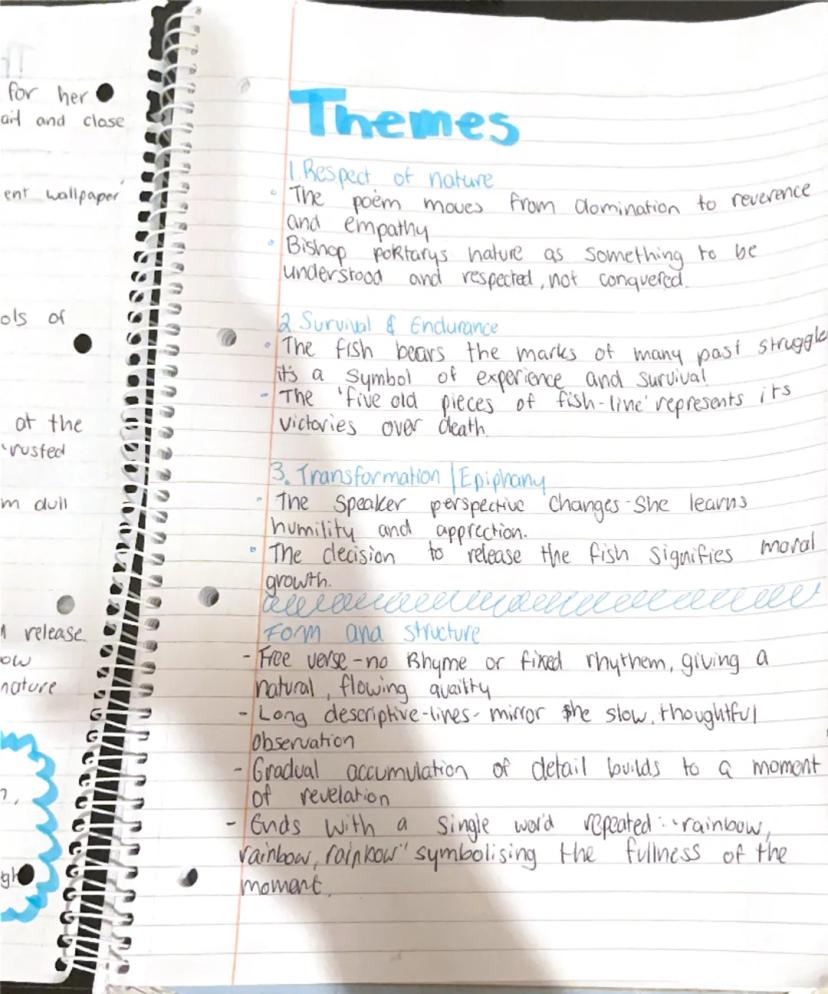 for her
and close
ent wallpaper'
ols of
at the
'rusted
m dull
release.
ow
nature
Themes
1. Respect of nature
The poem moves from domination to reverence
and empathy
Bishop poktarys nature as something to be
understood and respected, not conquered.
2 Survival & Endurance
The fish bears the marks of many past struggle
it's a symbol of experience and survival
The 'five old pieces of fish-line' represents its
victories over death.
3. Transformation | Epiphany
The speaker perspective changes - She learns
humility and apprection.
The decision to release the fish signifies moral
growth.
Form and structure
- Free verse - no Rhyme or fixed rhythem, giving a
natural, flowing quailty
- Long descriptive-lines - mirror the slow, thoughtful
observation
- Gradual accumulation of detail builds to a moment
of revelation
- Ends with a single word repeated: "rainbow,
rainbow, rainbow" symbolising the fullness of the
moment.